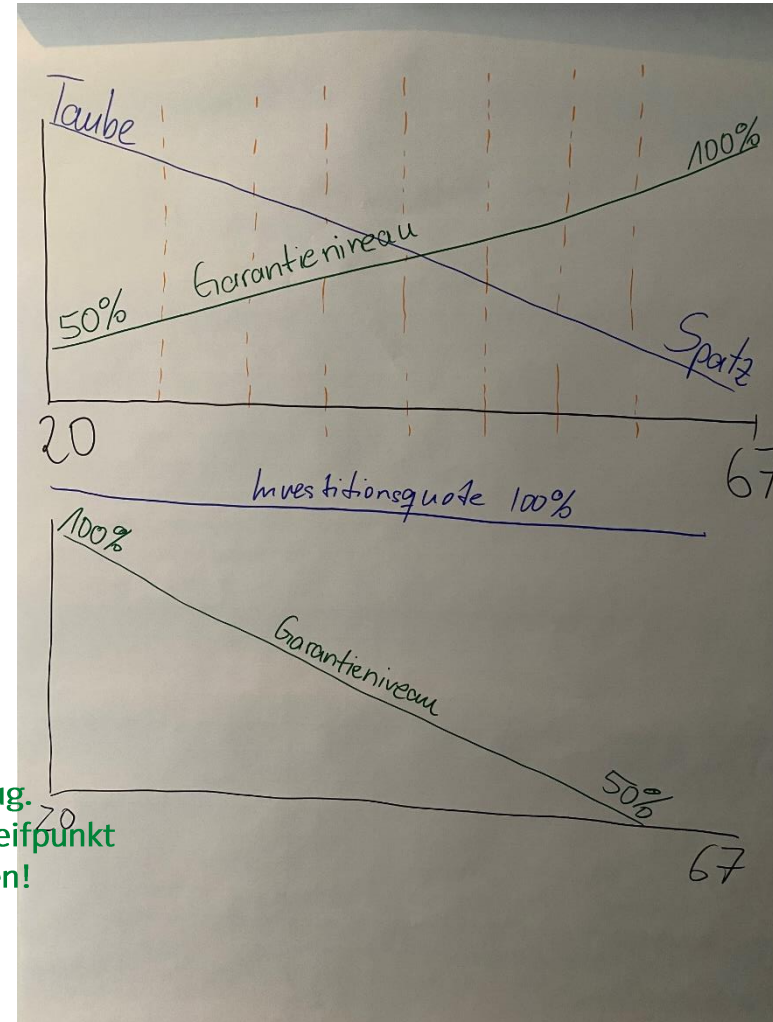 Taube
100%
Garantieniveau
50%
Spatz
20
67
Investitionsquote 100%
100%
Garantieniveau
50%
20
67